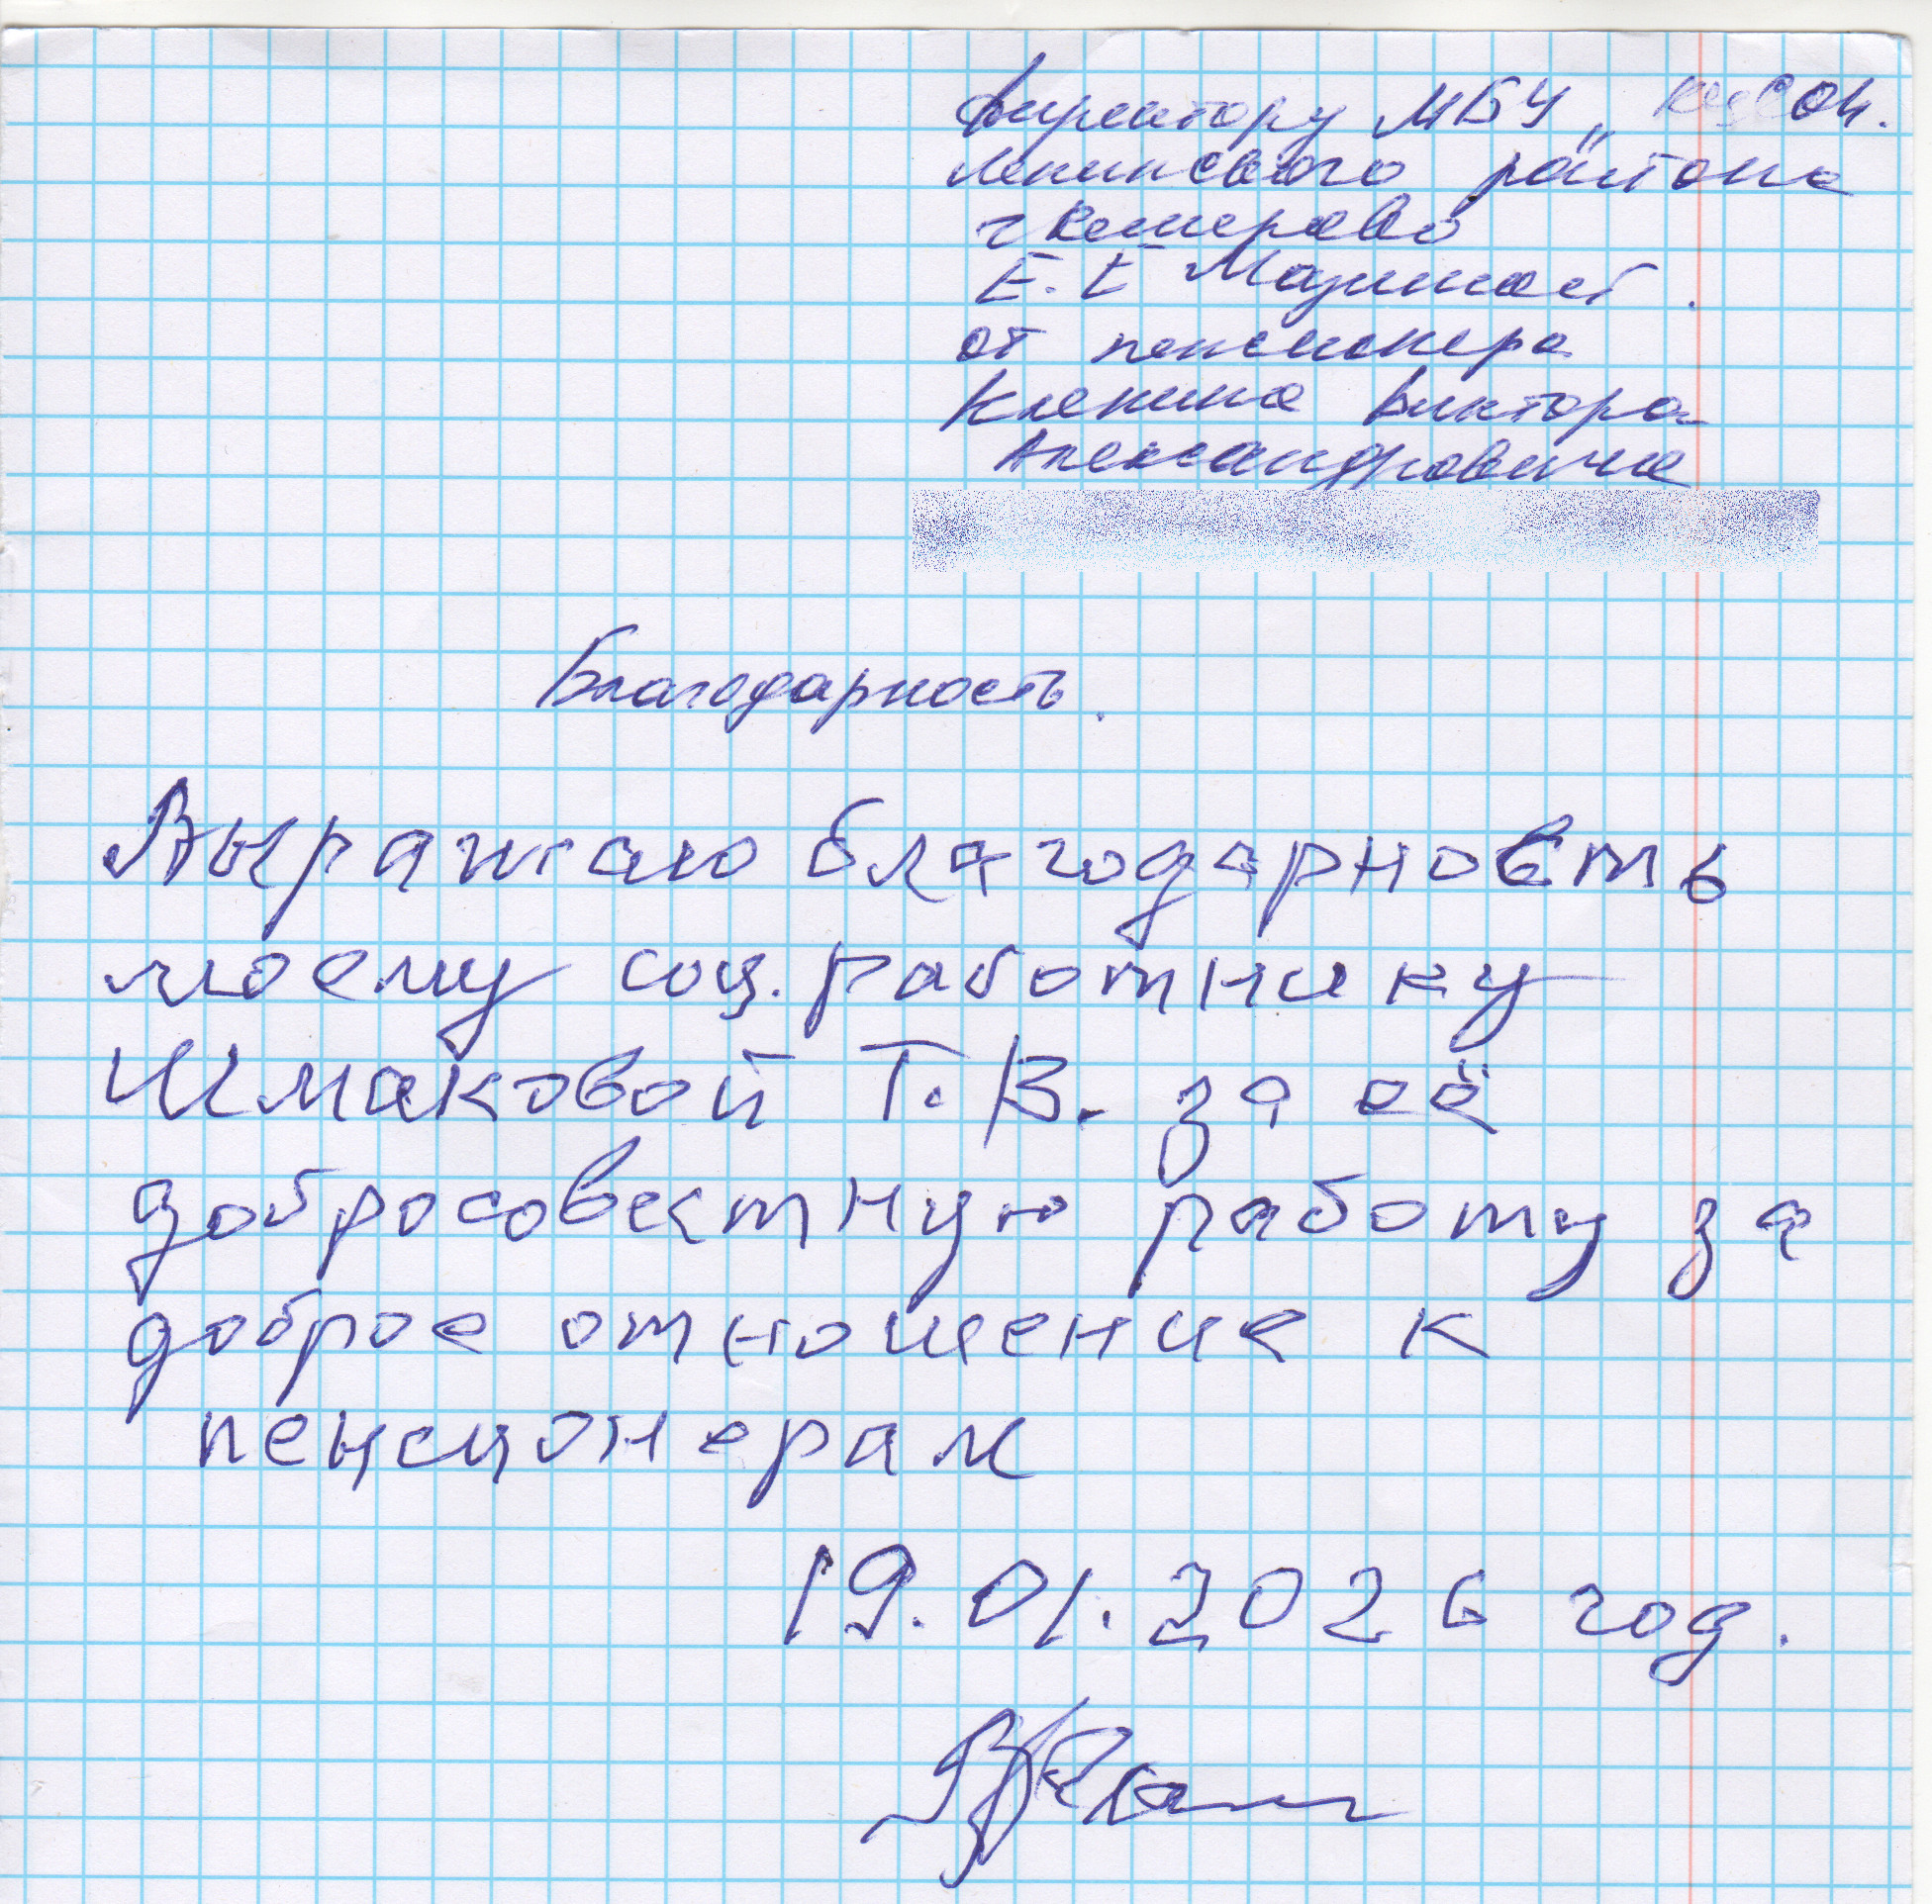 Директору МБУ „КЦСОН"
Ленинского района
г Кемерово
Е. Е
от пенсионера
Кленина Виктора
Александровича
Благодарность.
Выражаю благодарность
моему соц. работнику
Шмаковой Т. В. за её
добросовестную работу за
доброе отношение к
пенсионерам
19.01.2026 год.